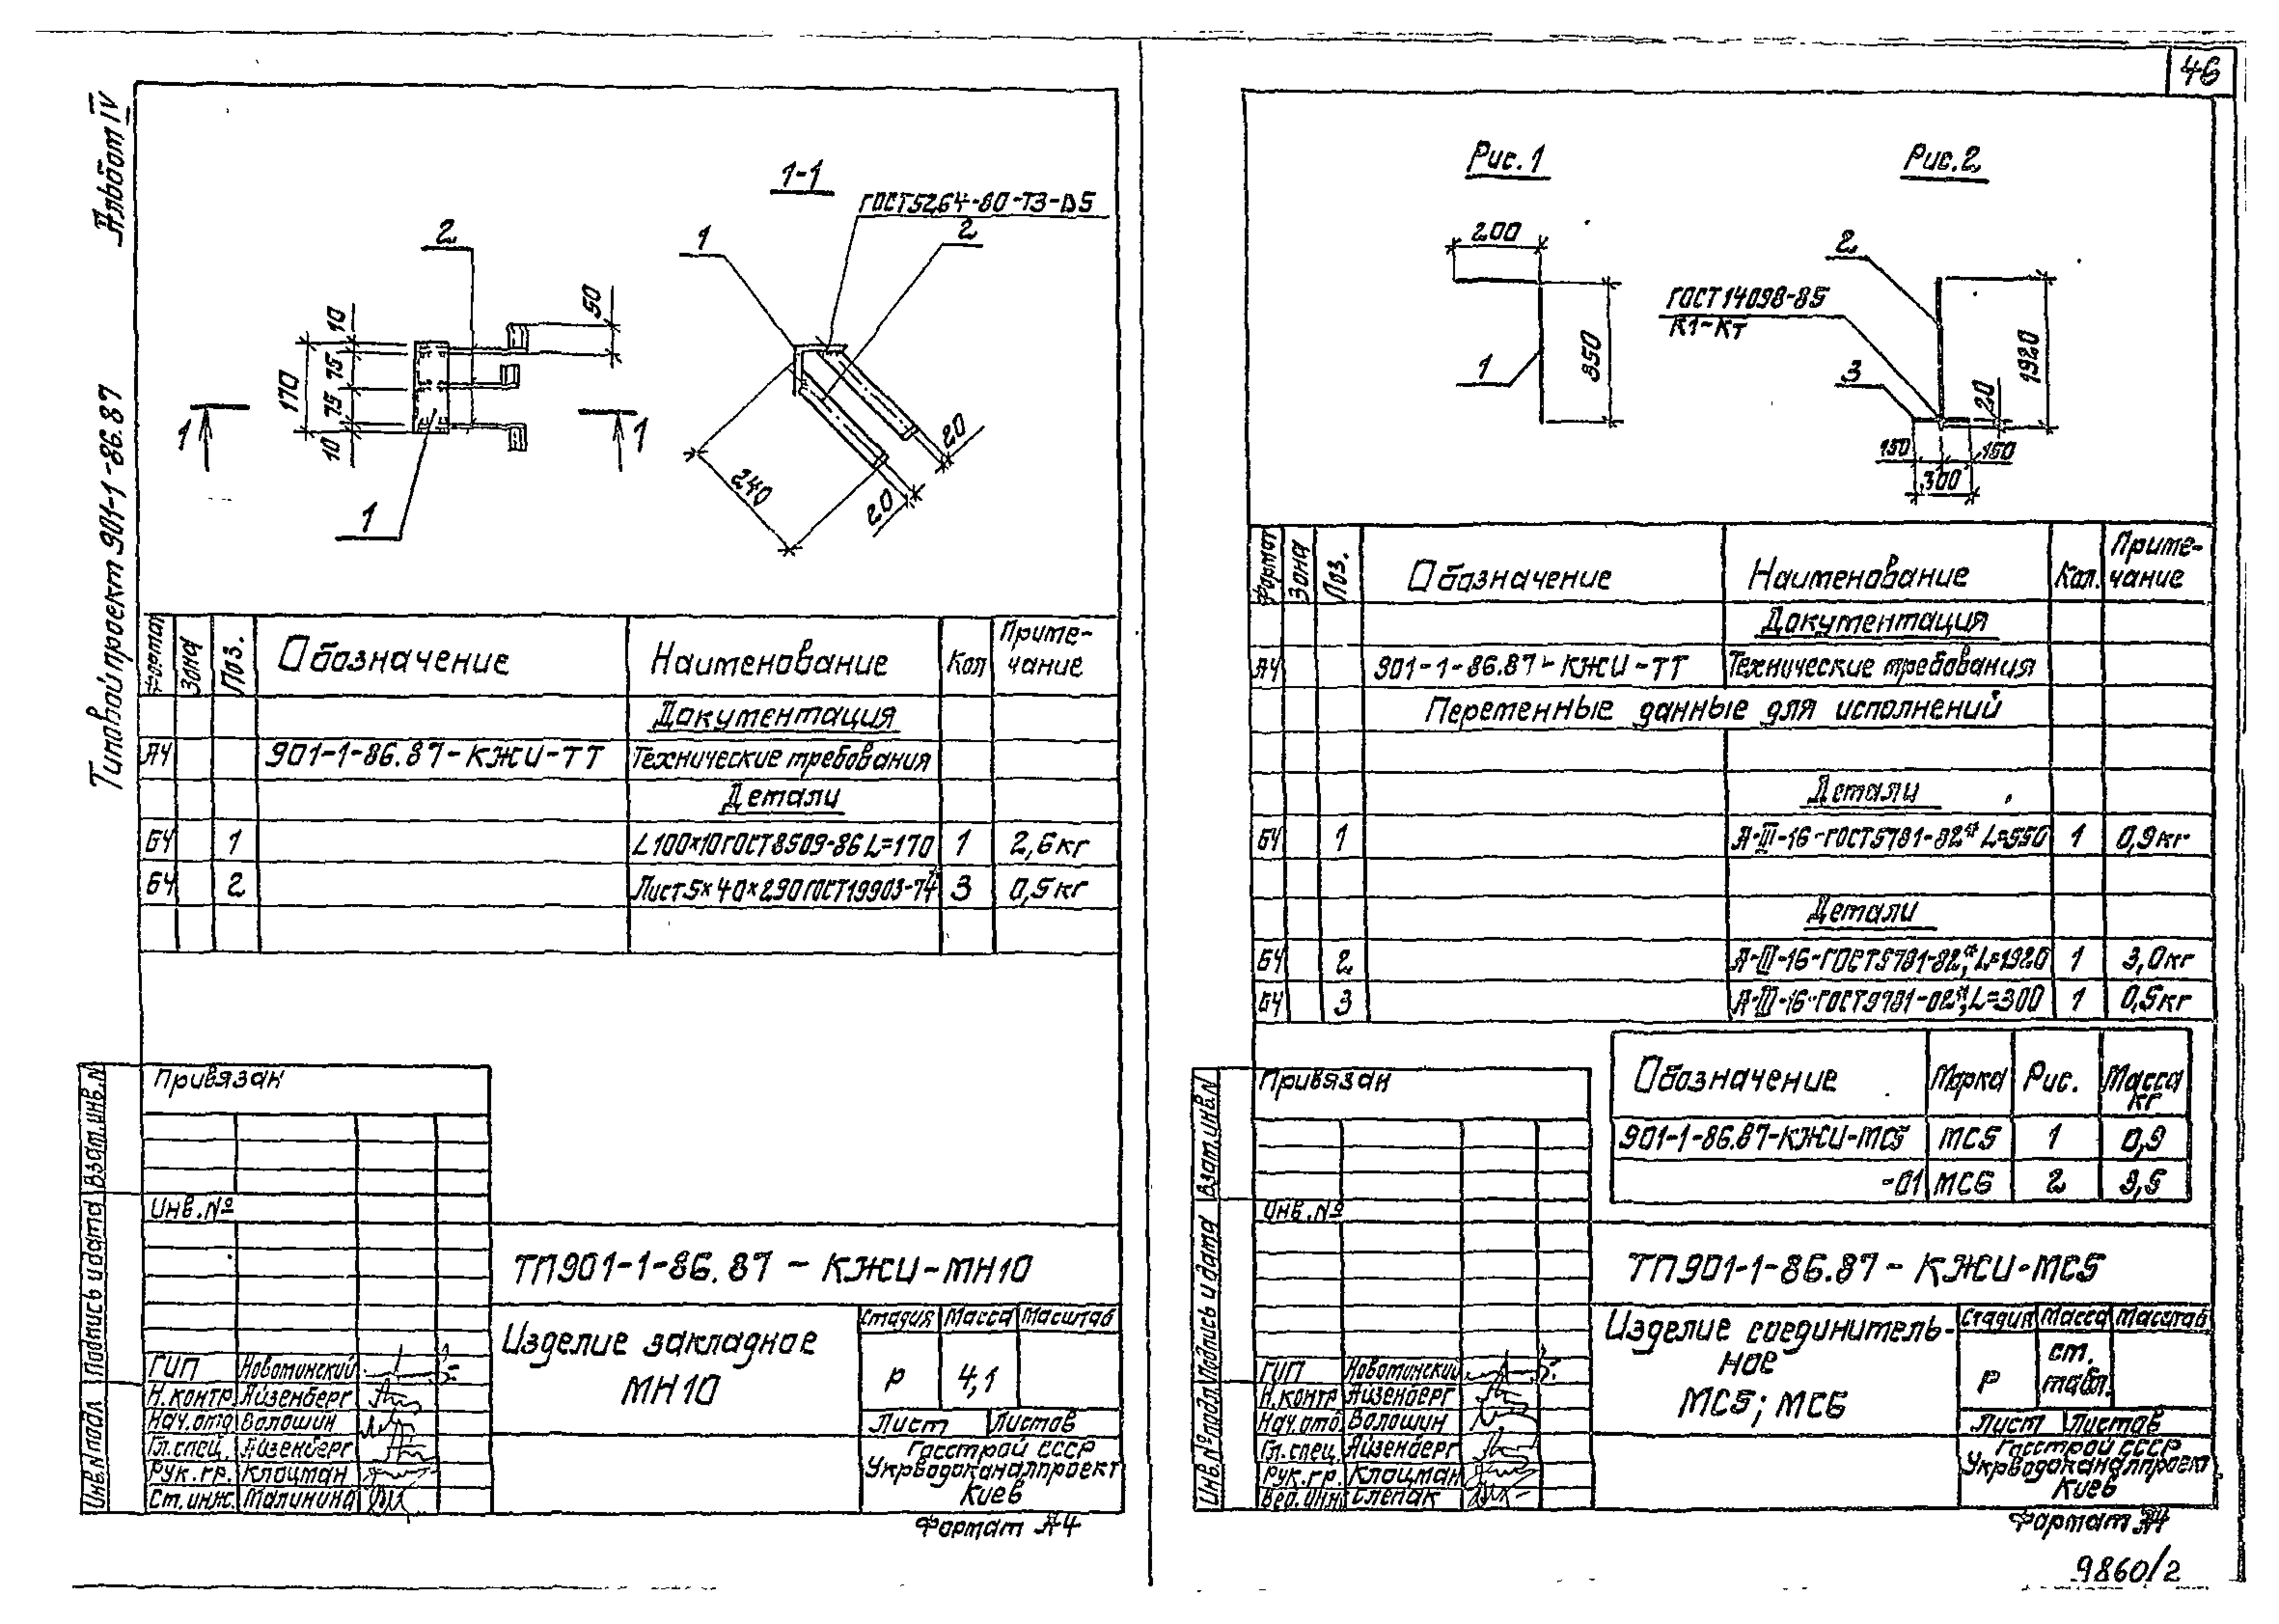 46
Альбом IV
Типовой проект 901-1-86.87
1-1
ГОСТ5264-80-Т3-Δ5
2
1
2
50
10
75
170
75
10
1
1
1
240
20
20
Формат Зона Поз. Обозначение Наименование Кол Приме-
чание
Документация
А4 901-1-86.87-КЖИ-ТТ Технические требования
Детали
БЧ 1 L100×10 ГОСТ8509-86 L=170 1 2,6кг
БЧ 2 Лист 5×40×290 ГОСТ19903-74* 3 0,5кг
Привязан
Инв.№
ТП901-1-86.87-КЖИ-МН10
Изделие закладное
МН10
Стадия Масса Масштаб
Р 4,1
Лист Листов
Госстрой СССР
Укрводоканалпроект
Киев
ГИП Новотинский
Н.контр Айзенберг
Нач.отд Волошин
Гл.спец. Айзенберг
Рук.гр. Клоцман
Ст.инж. Малинина
Инв.N подл Подпись и дата Взат.инв.N
Формат А4
Рис.1
200
350
1
Рис.2
2
ГОСТ14098-85
К1-Кт
3
1920
20
150
150
300
Формат Зона Поз. Обозначение Наименование Кол. Приме-
чание
Документация
А4 901-1-86.87-КЖИ-ТТ Технические требования
Переменные данные для исполнений
Детали
БЧ 1 А-III-16-ГОСТ5781-82* L=550 1 0,9кг
Детали
БЧ 2 А-III-16-ГОСТ5781-82*, L=1920 1 3,0кг
БЧ 3 А-III-16-ГОСТ5781-82*, L=300 1 0,5кг
Обозначение Марка Рис. Масса
кг
901-1-86.87-КЖИ-МС5 МС5 1 0,9
-01 МС6 2 3,5
Привязан
Инв.№
ТП901-1-86.87-КЖИ-МС5
Изделие соединитель-
ное
МС5; МС6
Стадия Масса Масштаб
Р ст.
табл.
Лист Листов
Госстрой СССР
Укрводоканалпроект
Киев
ГИП Новотинский
Н.контр Айзенберг
Нач.отд Волошин
Гл.спец. Айзенберг
Рук.гр. Клоцман
Вед.инж Слепак
Инв.№ подл. Подпись и дата Взат.инв.N
Формат А4
9860/2